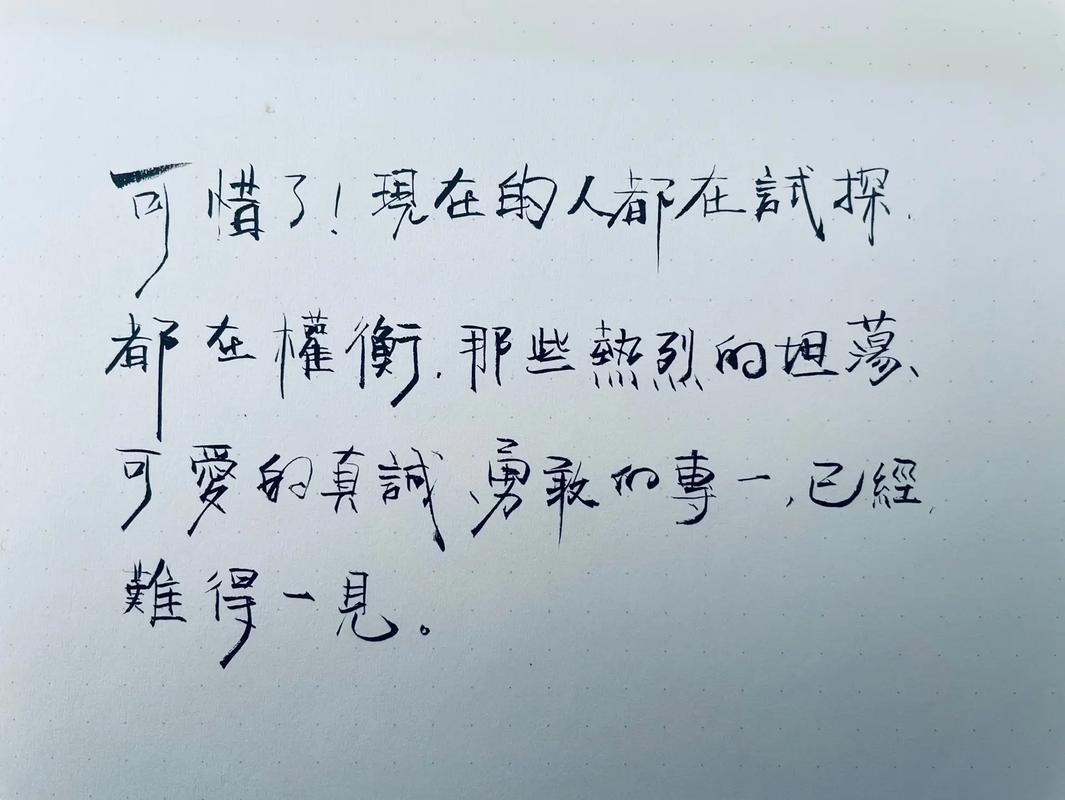 可惜了！現在的人都在試探，
都在權衡，那些熱烈的坦蕩、
可愛的真誠、勇敢的專一，已經
難得一見。